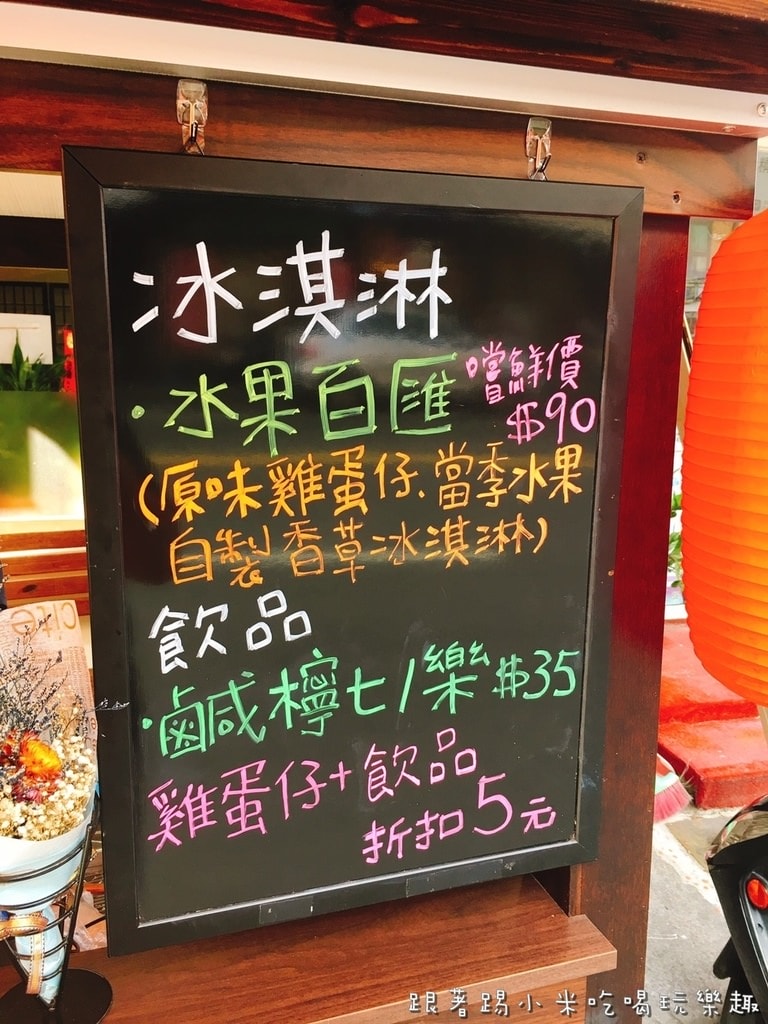 冰淇淋
·水果百匯 嚐鮮價
$90
(原味雞蛋仔、當季水果
自製香草冰淇淋)
飲品
·鹹檸七/樂 $35
雞蛋仔+飲品
折扣5元
跟著踢小米吃喝玩樂趣